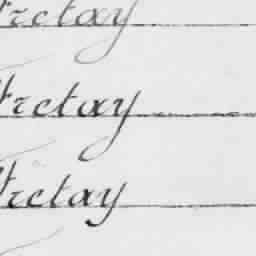 Frctay
Frctay
Frctay